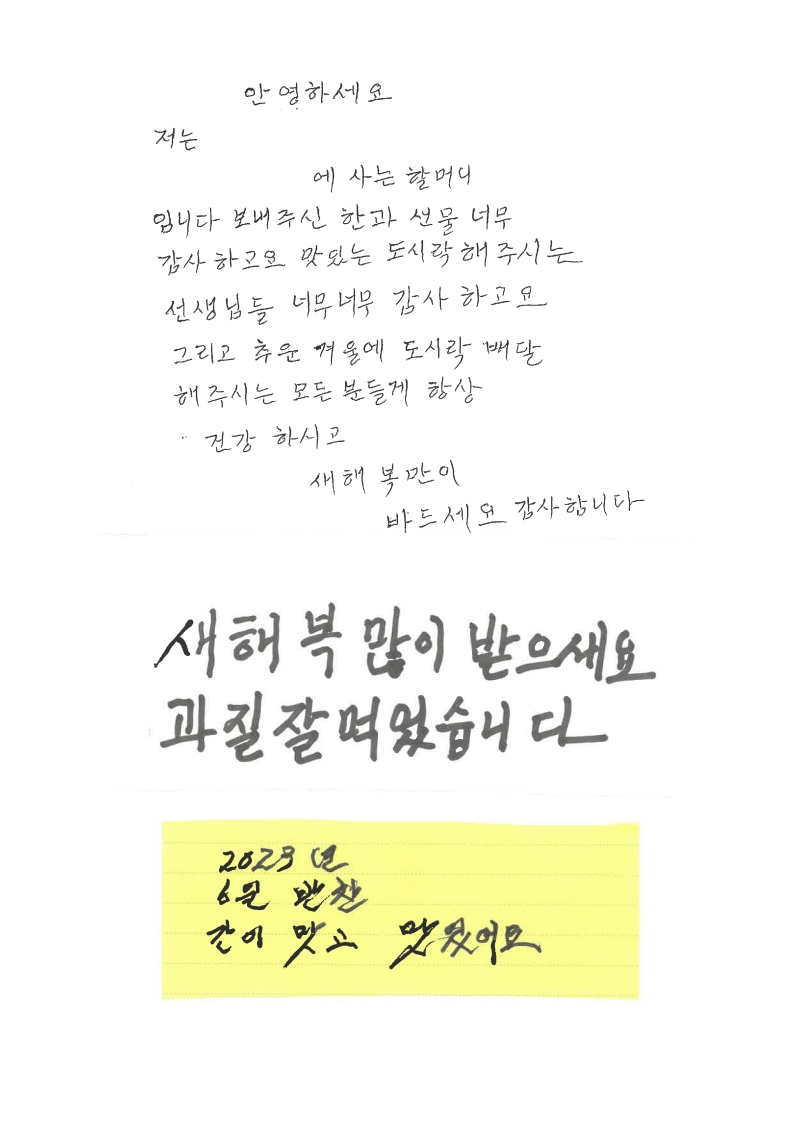 안영하세요
저는
에 사는 할머니
입니다 보내주신 한과 선물 너무
감사 하고요 맛있는 도시락 해 주시는
선생님들 너무너무 감사 하고요
그리고 추운 겨울에 도시락 배달
해 주시는 모든 분들게 항상
건강 하시고
새해 복 만이
바드세요 감사합니다
새해 복 많이 받으세요
과질 잘 먹었습니다
2023년
6월 반찬
간이 맞고 맛있어요